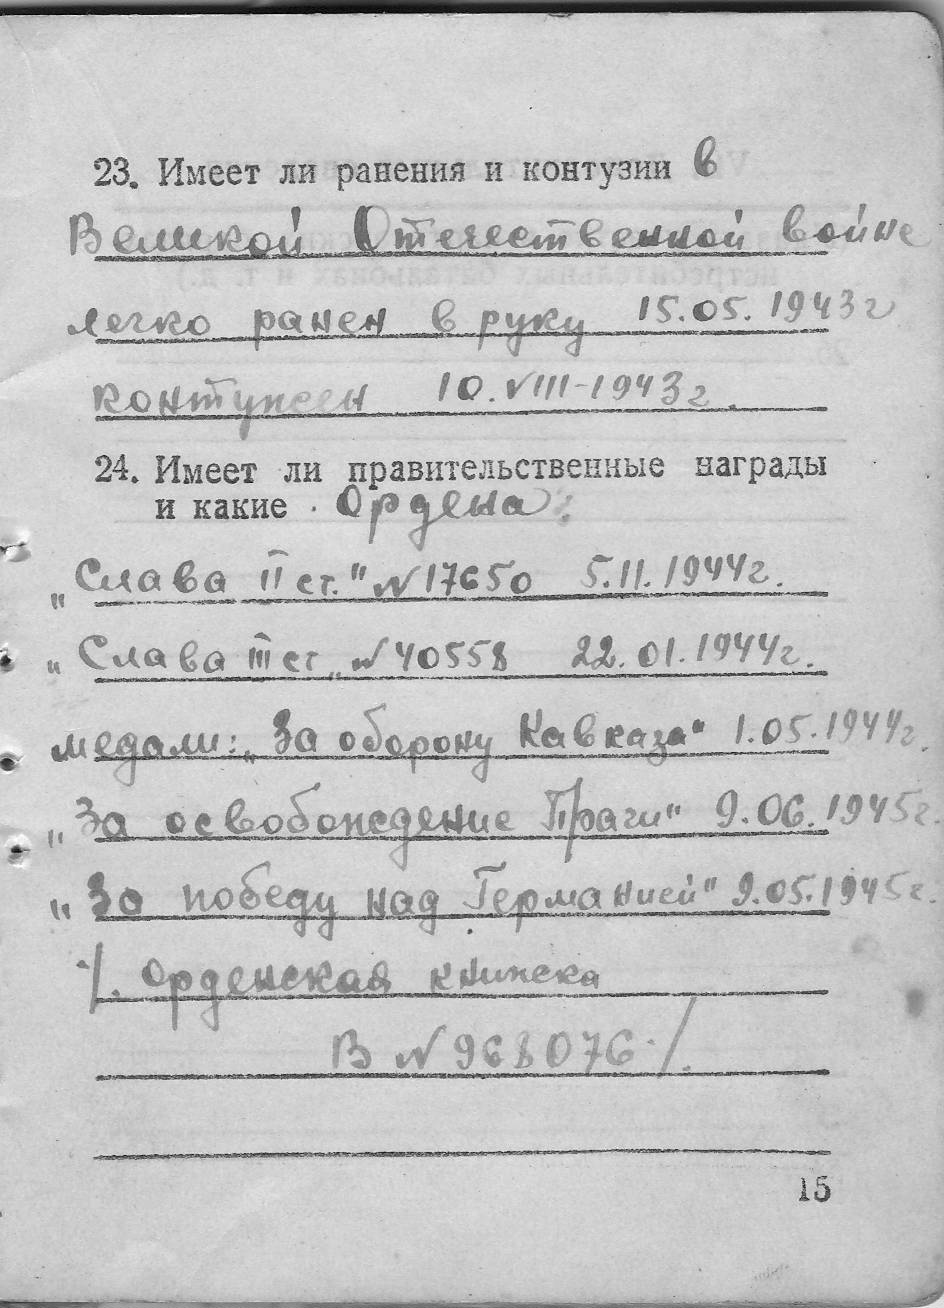 23. Имеет ли ранения и контузии в
Великой Отечественной войне
легко ранен в руку 15.05.1943г
контужен 10.VIII-1943г.
24. Имеет ли правительственные награды
и какие Ордена:
„Слава II ст." N17650 5.11.1944г.
„Слава III ст„ N40558 22.01.1944г.
медали: „За оборону Кавказа" 1.05.1944г.
„За освобождение Праги" 9.06.1945г.
„За победу над Германией" 9.05.1945г.
/. орденская книжка
В N968076./
15